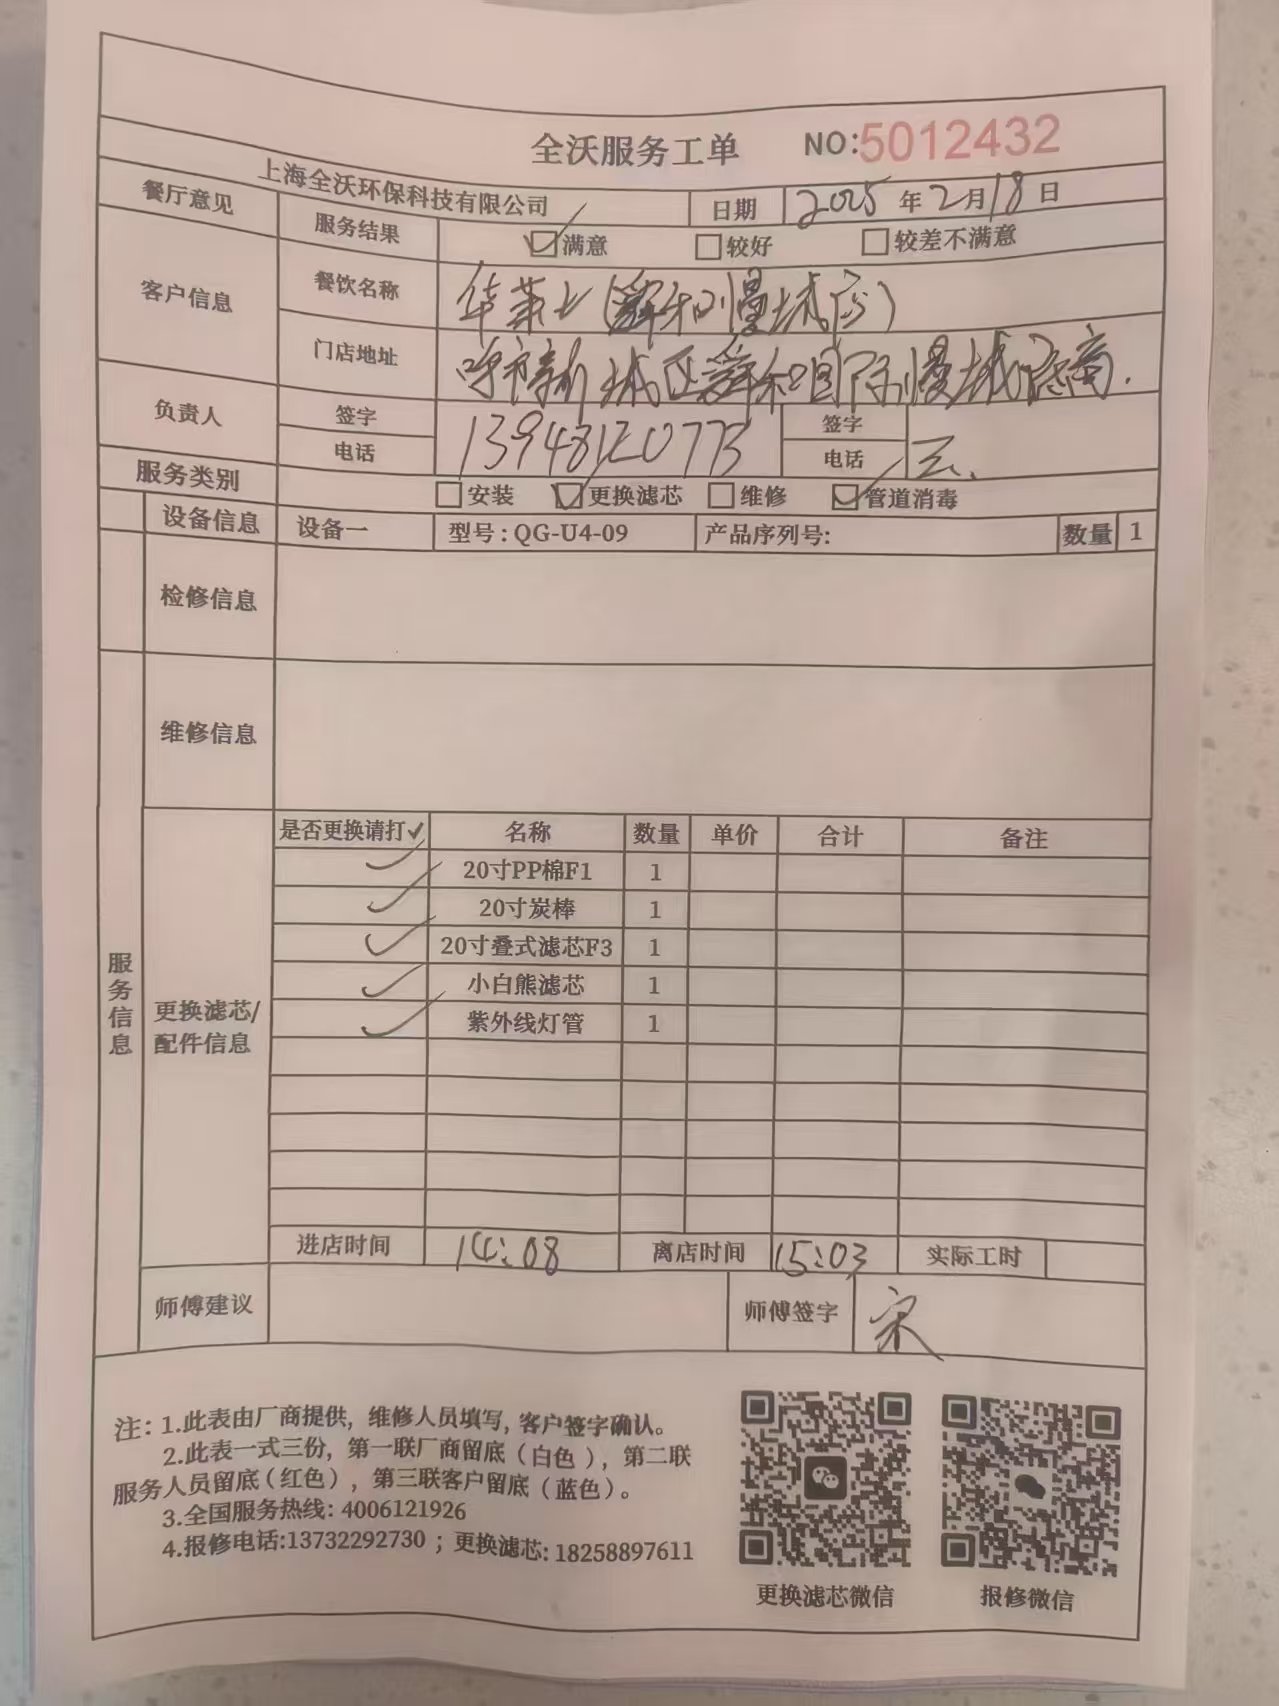 全沃服务工单 NO:5012432
上海全沃环保科技有限公司 日期 2025年2月18日
餐厅意见 服务结果 满意 较好 较差不满意
客户信息 餐饮名称 华莱士(舜和慢城店)
门店地址 呼市新城区舜和国际慢城底商.
负责人 签字 签字
电话 13948120773 电话
服务类别 安装 更换滤芯 维修 管道消毒
设备信息 设备一 型号:QG-U4-09 产品序列号: 数量 1
检修信息
维修信息
服务信息
更换滤芯/配件信息
是否更换请打✓ 名称 数量 单价 合计 备注
✓ 20寸PP棉F1 1
✓ 20寸炭棒 1
✓ 20寸叠式滤芯F3 1
✓ 小白熊滤芯 1
✓ 紫外线灯管 1
进店时间 14:08 离店时间 15:03 实际工时
师傅建议 师傅签字 宋
注:1.此表由厂商提供,维修人员填写,客户签字确认。
2.此表一式三份,第一联厂商留底(白色),第二联
服务人员留底(红色),第三联客户留底(蓝色)。
3.全国服务热线:4006121926
4.报修电话:13732292730;更换滤芯:18258897611
更换滤芯微信 报修微信